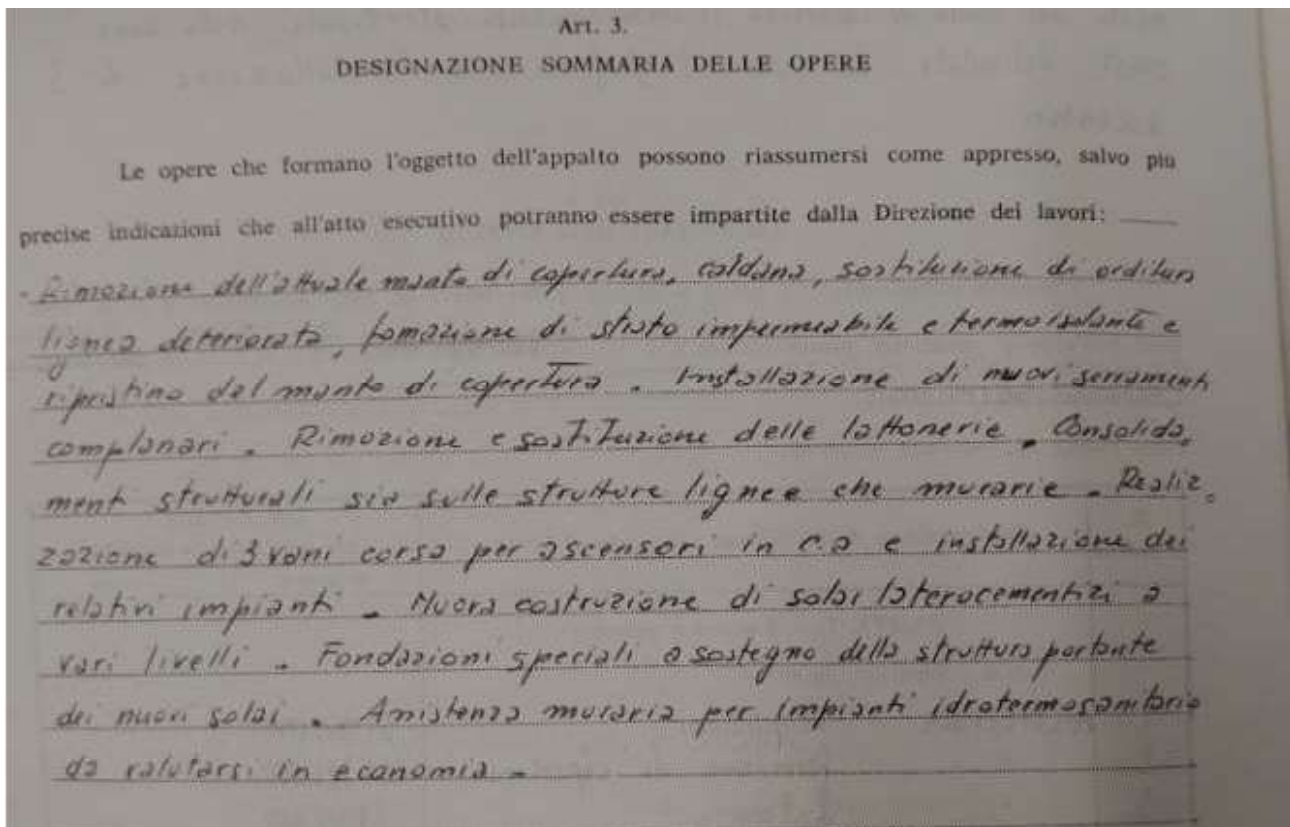 Art. 3.
DESIGNAZIONE SOMMARIA DELLE OPERE
Le opere che formano l'oggetto dell'appalto possono riassumersi come appresso, salvo più
precise indicazioni che all'atto esecutivo potranno essere impartite dalla Direzione dei lavori:
- Rimozione dell'attuale manto di copertura, caldana, sostituzione di orditura
lignea deteriorata, formazione di strato impermeabile e termoisolante e
ripristino del manto di copertura. Installazione di nuovi serramenti
complanari. Rimozione e sostituzione delle lattonerie. Consolida,
menti strutturali sia sulle strutture lignee che murarie. Realiz,
zazione di 3 vani corsa per ascensori in c.a e installazione dei
relativi impianti. Nuova costruzione di solai laterocementizi a
vari livelli. Fondazioni speciali a sostegno della struttura portante
dei nuovi solai. Assistenza muraria per impianti idrotermosanitario
da valutarsi in economia.